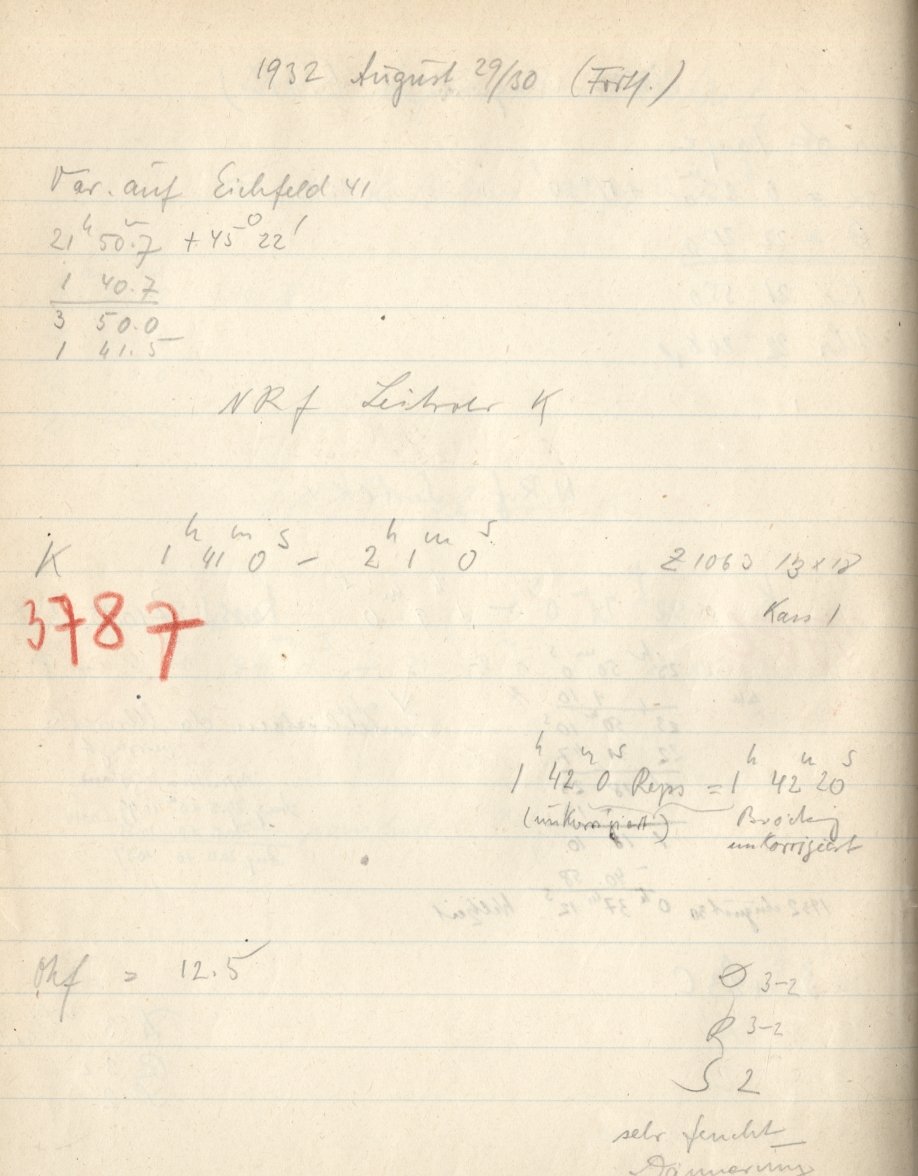 1932 August 29/30 (Forts.)
Var. auf Eichfeld 41
21h 50m.7 + 45° 22'
1 40.7
3 50.0
1 41.5
NRf K
K 1h 41m 0s – 2h 1m 0s Z 1063 13x18
3787 Kass 1
1h 42m 0s Reps = 1h 42m 20s
(unkorrigiert)
unkorrigiert
Okf = 12.5
3-2
3-2
S 2
sehr feucht
Dämmerung